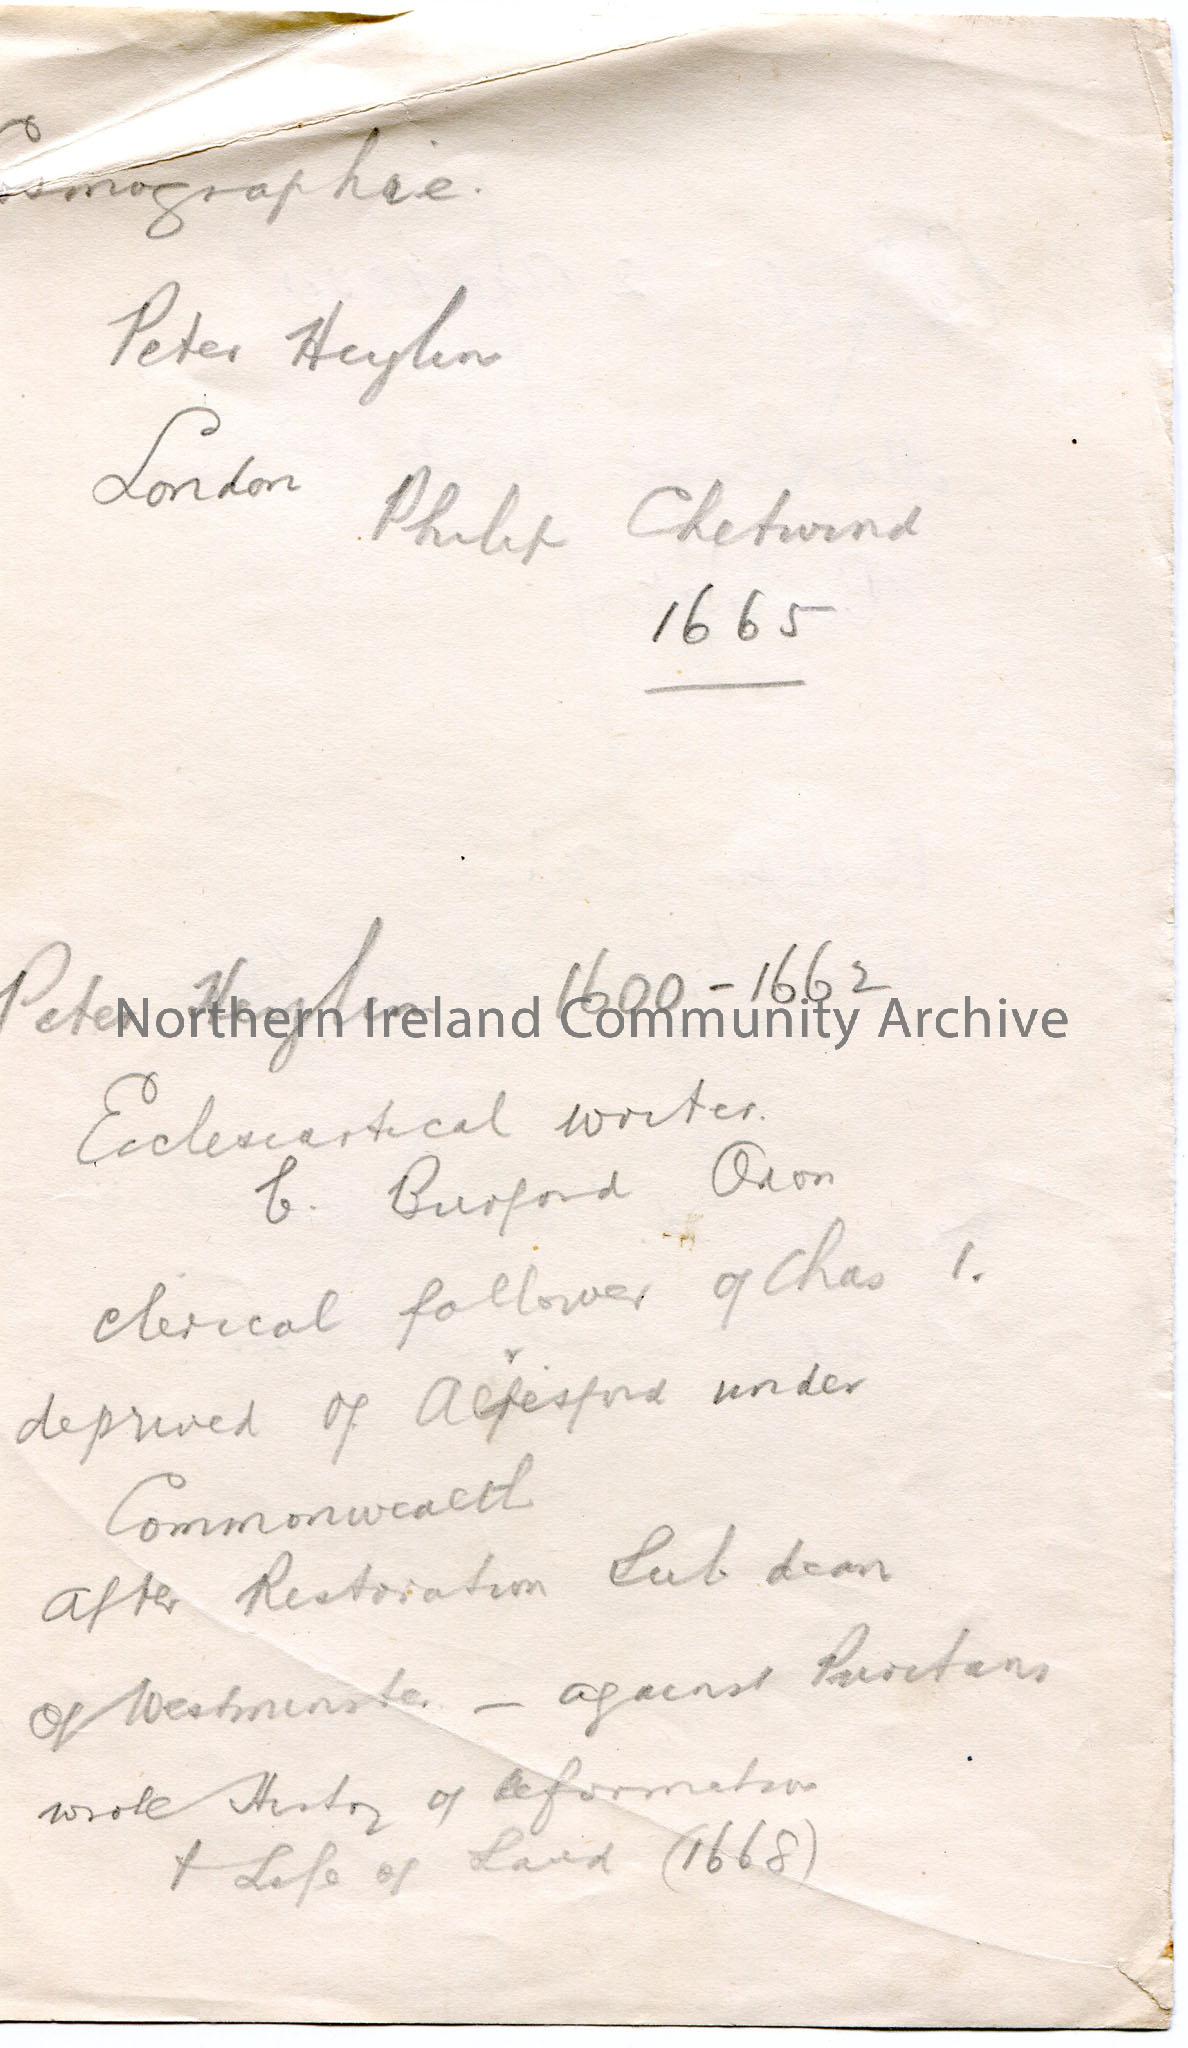 Cosmographie.
Peter Heylin
London
Philip Chetwind
1665
Peter Heylin 1600 - 1662
Northern Ireland Community Archive
Ecclesiastical writer.
b. Burford Oxon
clerical follower of Chas 1.
deprived of Alresford under
Commonwealth
after Restoration Sub dean
of Westminster - against Puritans
wrote History of Reformation
+ Life of Laud (1668)